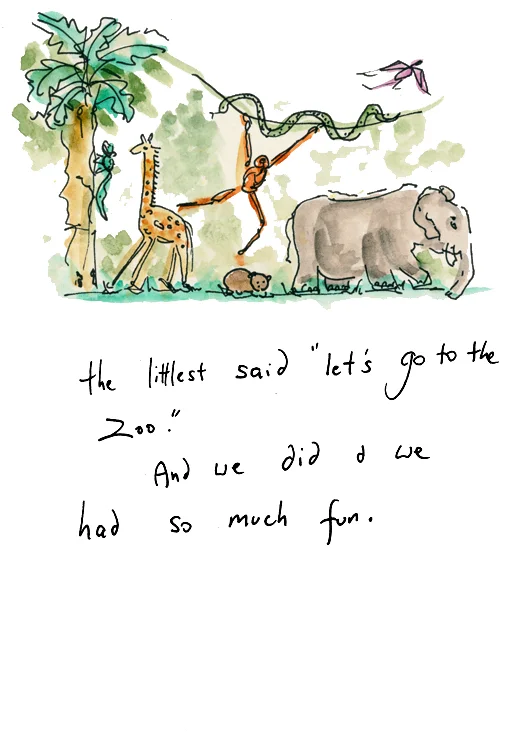 the littlest said "let's go to the
Zoo."
And we did & we
had so much fun.